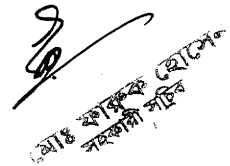 মোঃ ফারুক হোসেন
সহকারী সচিব